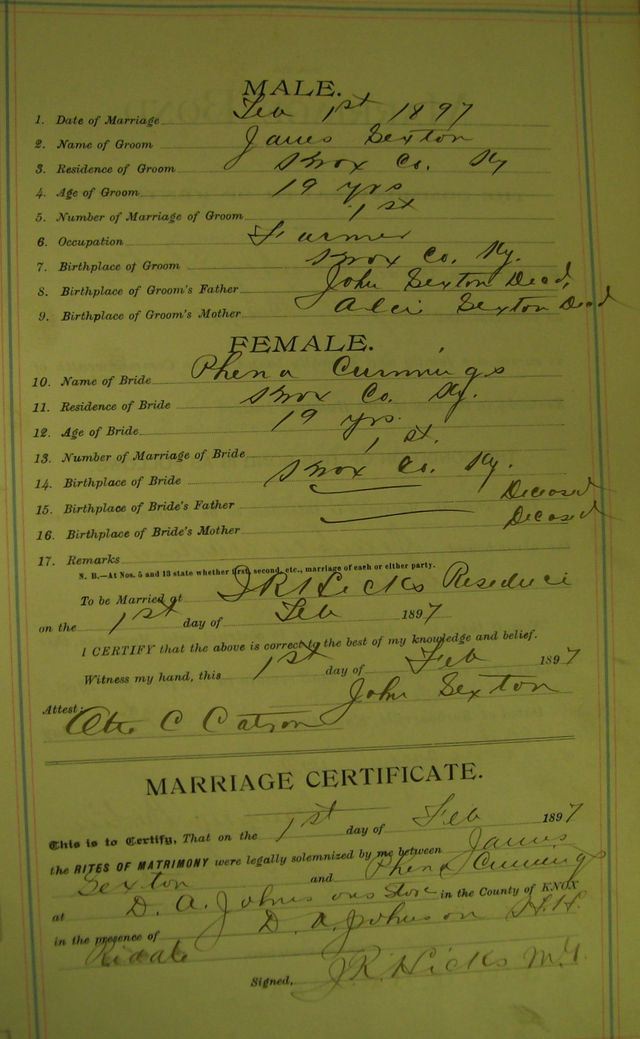 MALE.
1. Date of Marriage Feb 1st 1897
2. Name of Groom James Sexton
3. Residence of Groom Knox Co. Ky
4. Age of Groom 19 yrs
5. Number of Marriage of Groom 1st
6. Occupation Farmer
7. Birthplace of Groom Knox Co. Ky.
8. Birthplace of Groom's Father John Sexton Dead,
9. Birthplace of Groom's Mother Sexton Dead
FEMALE.
10. Name of Bride Phena Cummings
11. Residence of Bride Knox Co. Ky.
12. Age of Bride 19 yrs.
13. Number of Marriage of Bride 1 st.
14. Birthplace of Bride Knox Co. Ky.
15. Birthplace of Bride's Father Deceased
16. Birthplace of Bride's Mother Decased
17. Remarks
N. B.—At Nos. 5 and 13 state whether first, second, etc., marriage of each or either party.
To be Married at J R Hicks
on the 1st day of Feb 1897
I CERTIFY that the above is correct to the best of my knowledge and belief.
Witness my hand, this 1st day of Feb 1897
John Sexton
Attest: C Catron
MARRIAGE CERTIFICATE.
This is to Certify, That on the 1st day of Feb 1897
the RITES OF MATRIMONY were legally solemnized by me between James
Sexton and Phena Cummings
at D. A. Johnsons Store in the County of KNOX
in the presence of D. A. Johnson H. H.
Signed, J. R. Hicks M. G.